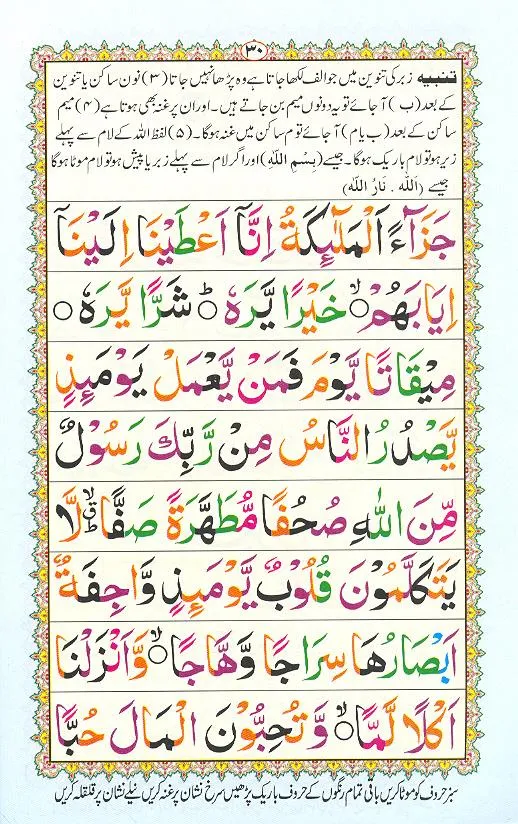 ۳۰
تنبیہ زبر کی تنوین میں جو الف لکھا جاتا ہے وہ پڑھا نہیں جاتا (۳) نون ساکن یا تنوین
کے بعد (ب) آ جائے تو یہ دونوں میم بن جاتے ہیں ۔ اور ان پر غنہ بھی ہوتا ہے (۴) میم
ساکن کے بعد (ب یا م) آ جائے تو م ساکن میں غنہ ہوگا ۔ (۵) لفظ اللہ کے لام سے پہلے
زیر ہو تو لام باریک ہوگا ۔ جیسے (بِسْمِ اللّٰهِ) اور اگر لام سے پہلے زبر یا پیش ہو تو لام موٹا ہوگا
جیسے (اَللّٰهُ ۔ نَارُ اللّٰهِ)
جَزَآءً اَلْمَلٰٓئِكَةُ اِنَّآ اَعْطَيْنَا اِلَيْنَآ
اِيَابَهُمْ ۙ○ خَيْرًا يَّرَهٗ ○ؕ شَرًّا يَّرَهٗ ○
مِيْقَاتًا يَّوْمَ فَمَنْ يَّعْمَلْ يَوْمَئِذٍ
يَّصْدُرُ النَّاسُ مِنْ رَّبِّكَ رَسُوْلٌ
مِّنَ اللّٰهِ صُحُفًا مُّطَهَّرَةً صَفًّا لَّا
يَتَكَلَّمُوْنَ قُلُوْبٌ يَّوْمَئِذٍ وَّاجِفَةٌ
اَبْصَارُهَا سِرَاجًا وَّهَّاجًا ۙ○ وَّاَنْزَلْنَا
اَكْلًا لَّمًّا ۙ○ وَّ تُحِبُّوْنَ الْمَالَ حُبًّا
سبز حروف کو موٹا کریں باقی تمام رنگوں کے حروف باریک پڑھیں سرخ نشان پر غنہ کریں نیلے نشان پر قلقلہ کریں